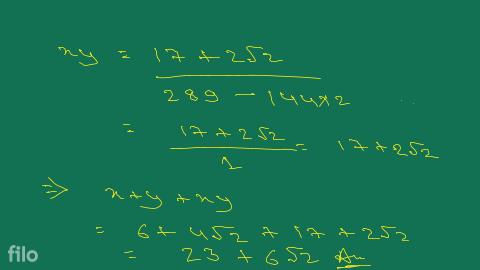 xy = 17 + 2√2
289 - 144×2
= 17 + 2√2
1
= 17 + 2√2
⇒ x+y + xy
= 6 + 4√2 + 17 + 2√2
= 23 + 6√2 Ans
filo